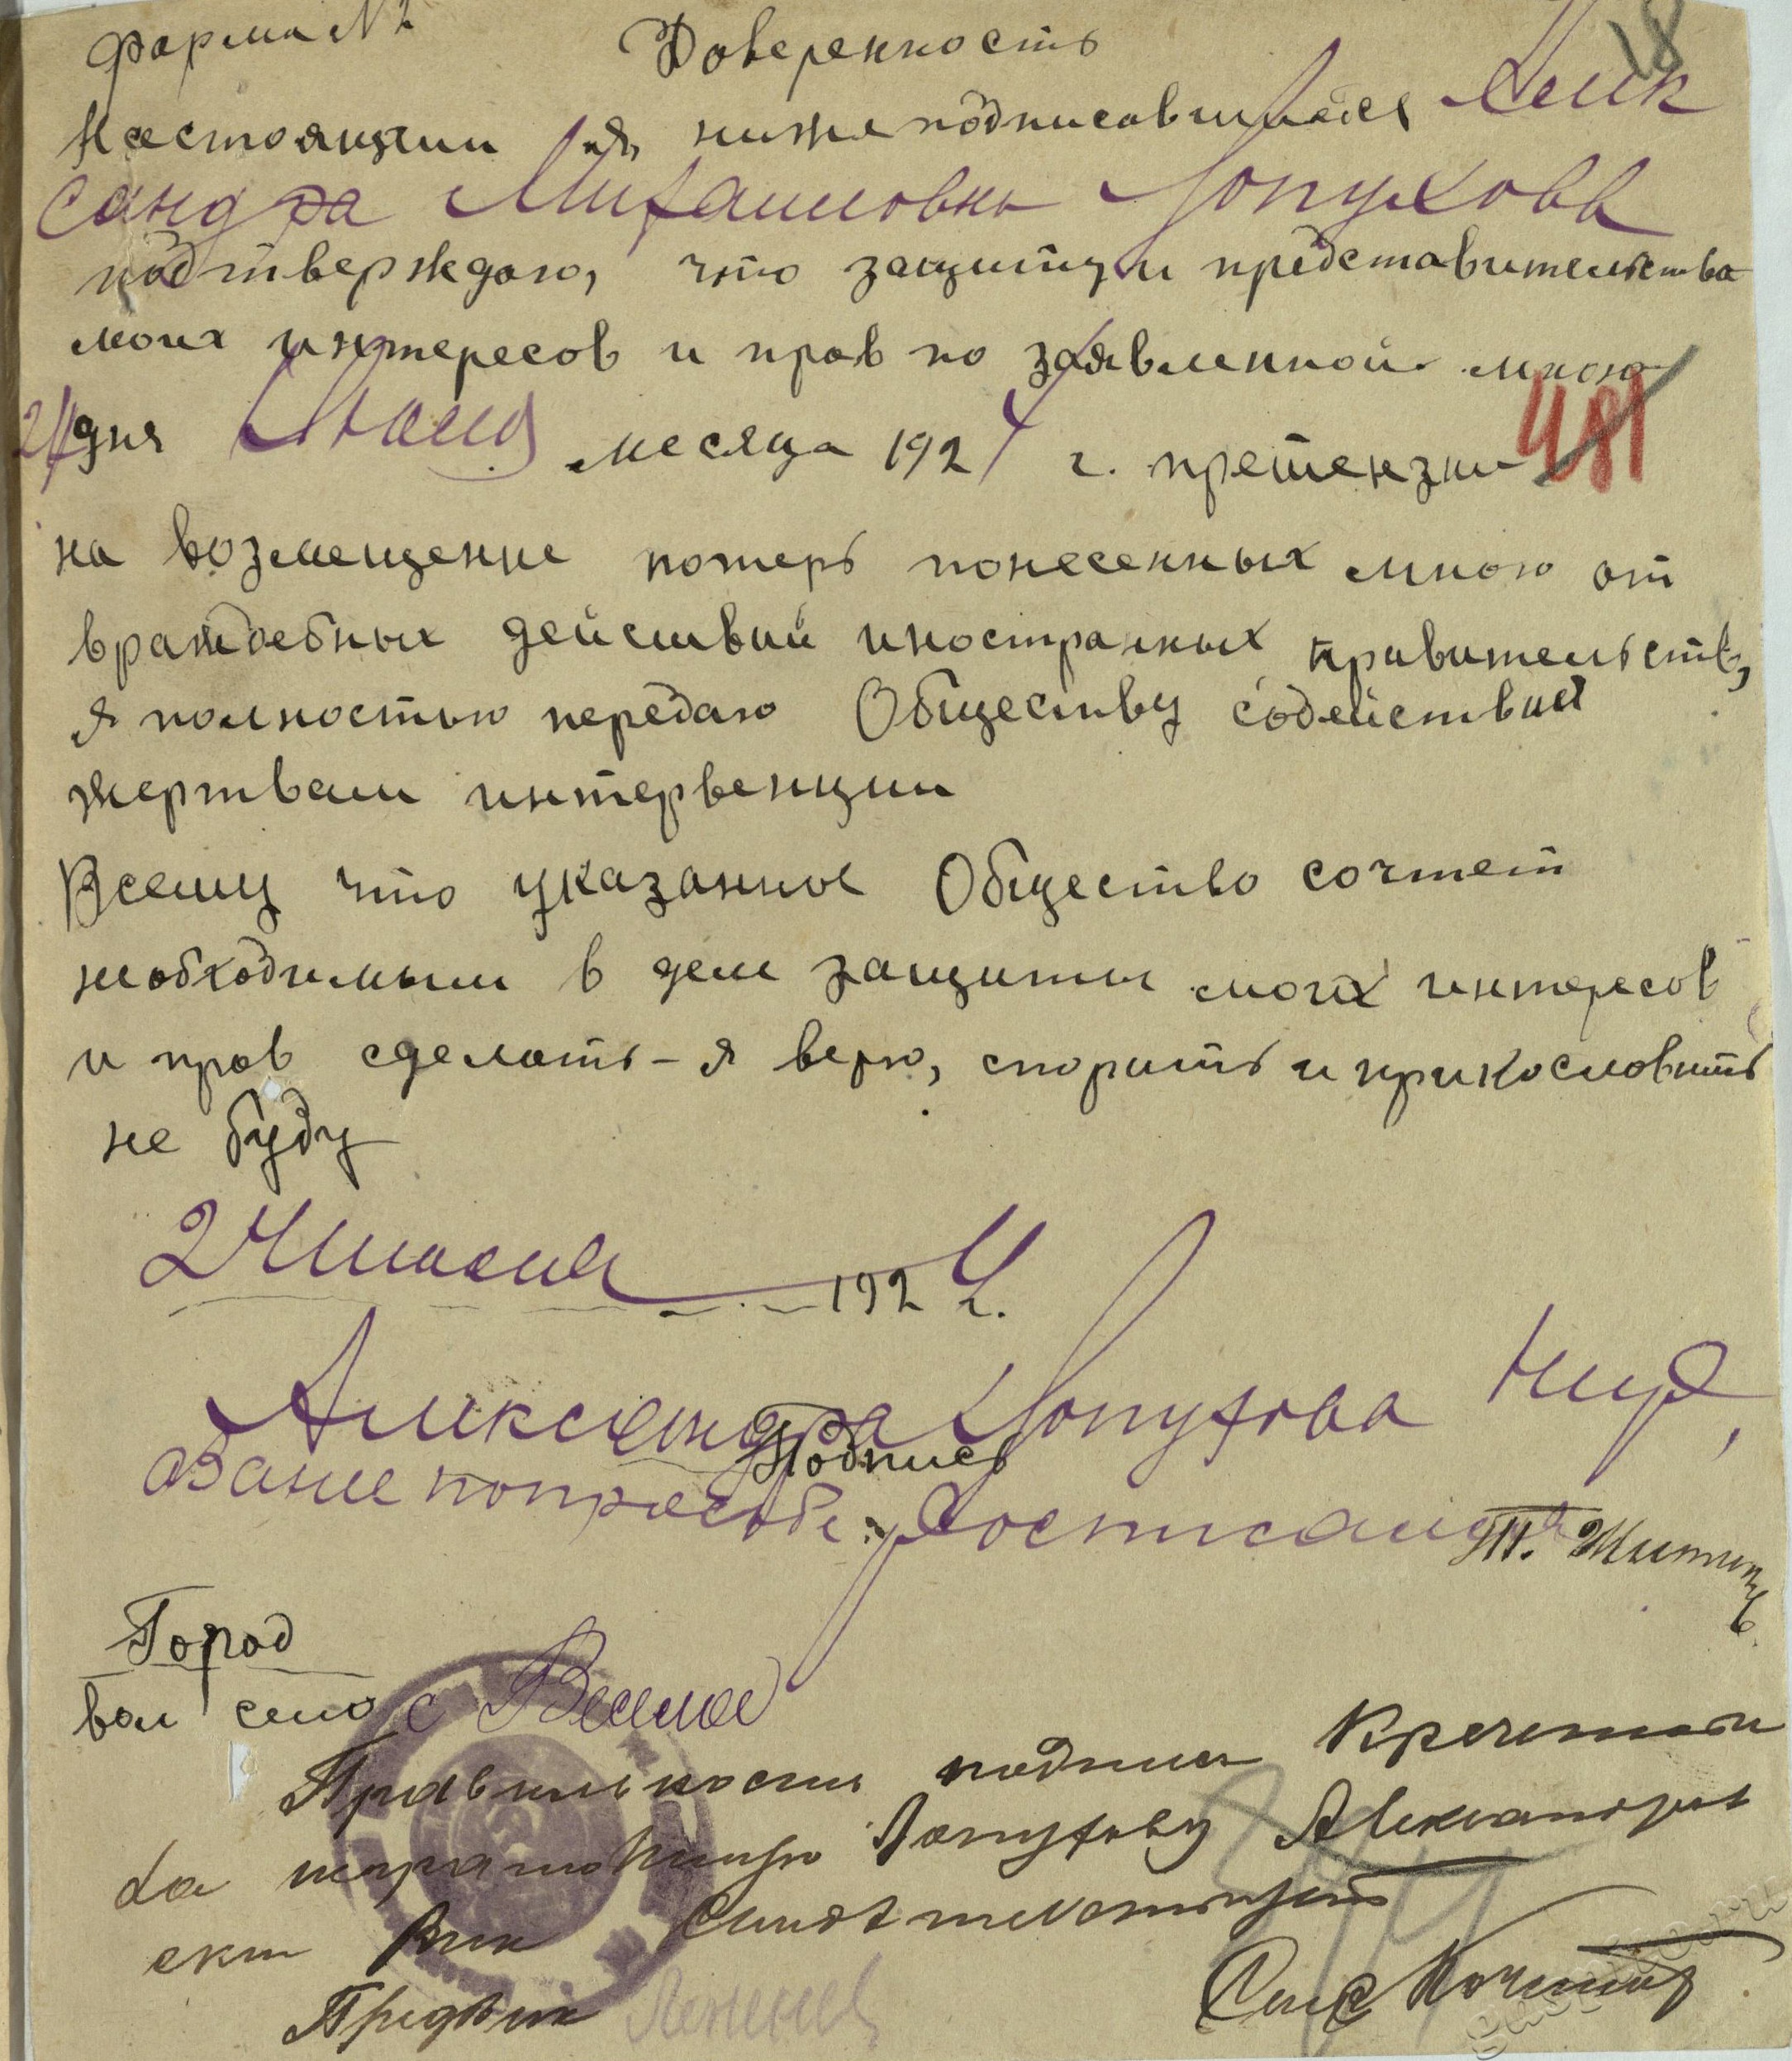 Форма № 2 Доверенность 18
Настоящим я, нижеподписавшийся Алек
сандра Михаиловна Лопухова
подтверждаю, что защиту и представительства
моих интересов и прав по заявленной мною
24 дня Июня месяца 1924 г. претензии 481
на возмещение потерь понесенных мною от
враждебных действий иностранных правительств,
я полностью передаю Обществу содействия
жертвам интервенции
Всему что указанное Общество сочтет
необходимым в деле защиты моих интересов
и прав сделать – я верю, спорить и прикословить
не буду
24 июня 1924 г.
Александра Лопухова Негр,
Подпись
Город
вол село с Веселое
Правильность подписи
Лопухову Александра
Вик
Предвик
Секр